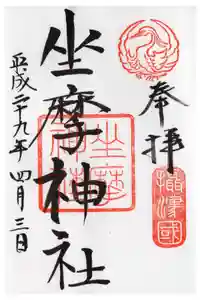 奉拝
攝津國
坐摩神社
坐摩神社
平成二十九年四月三日